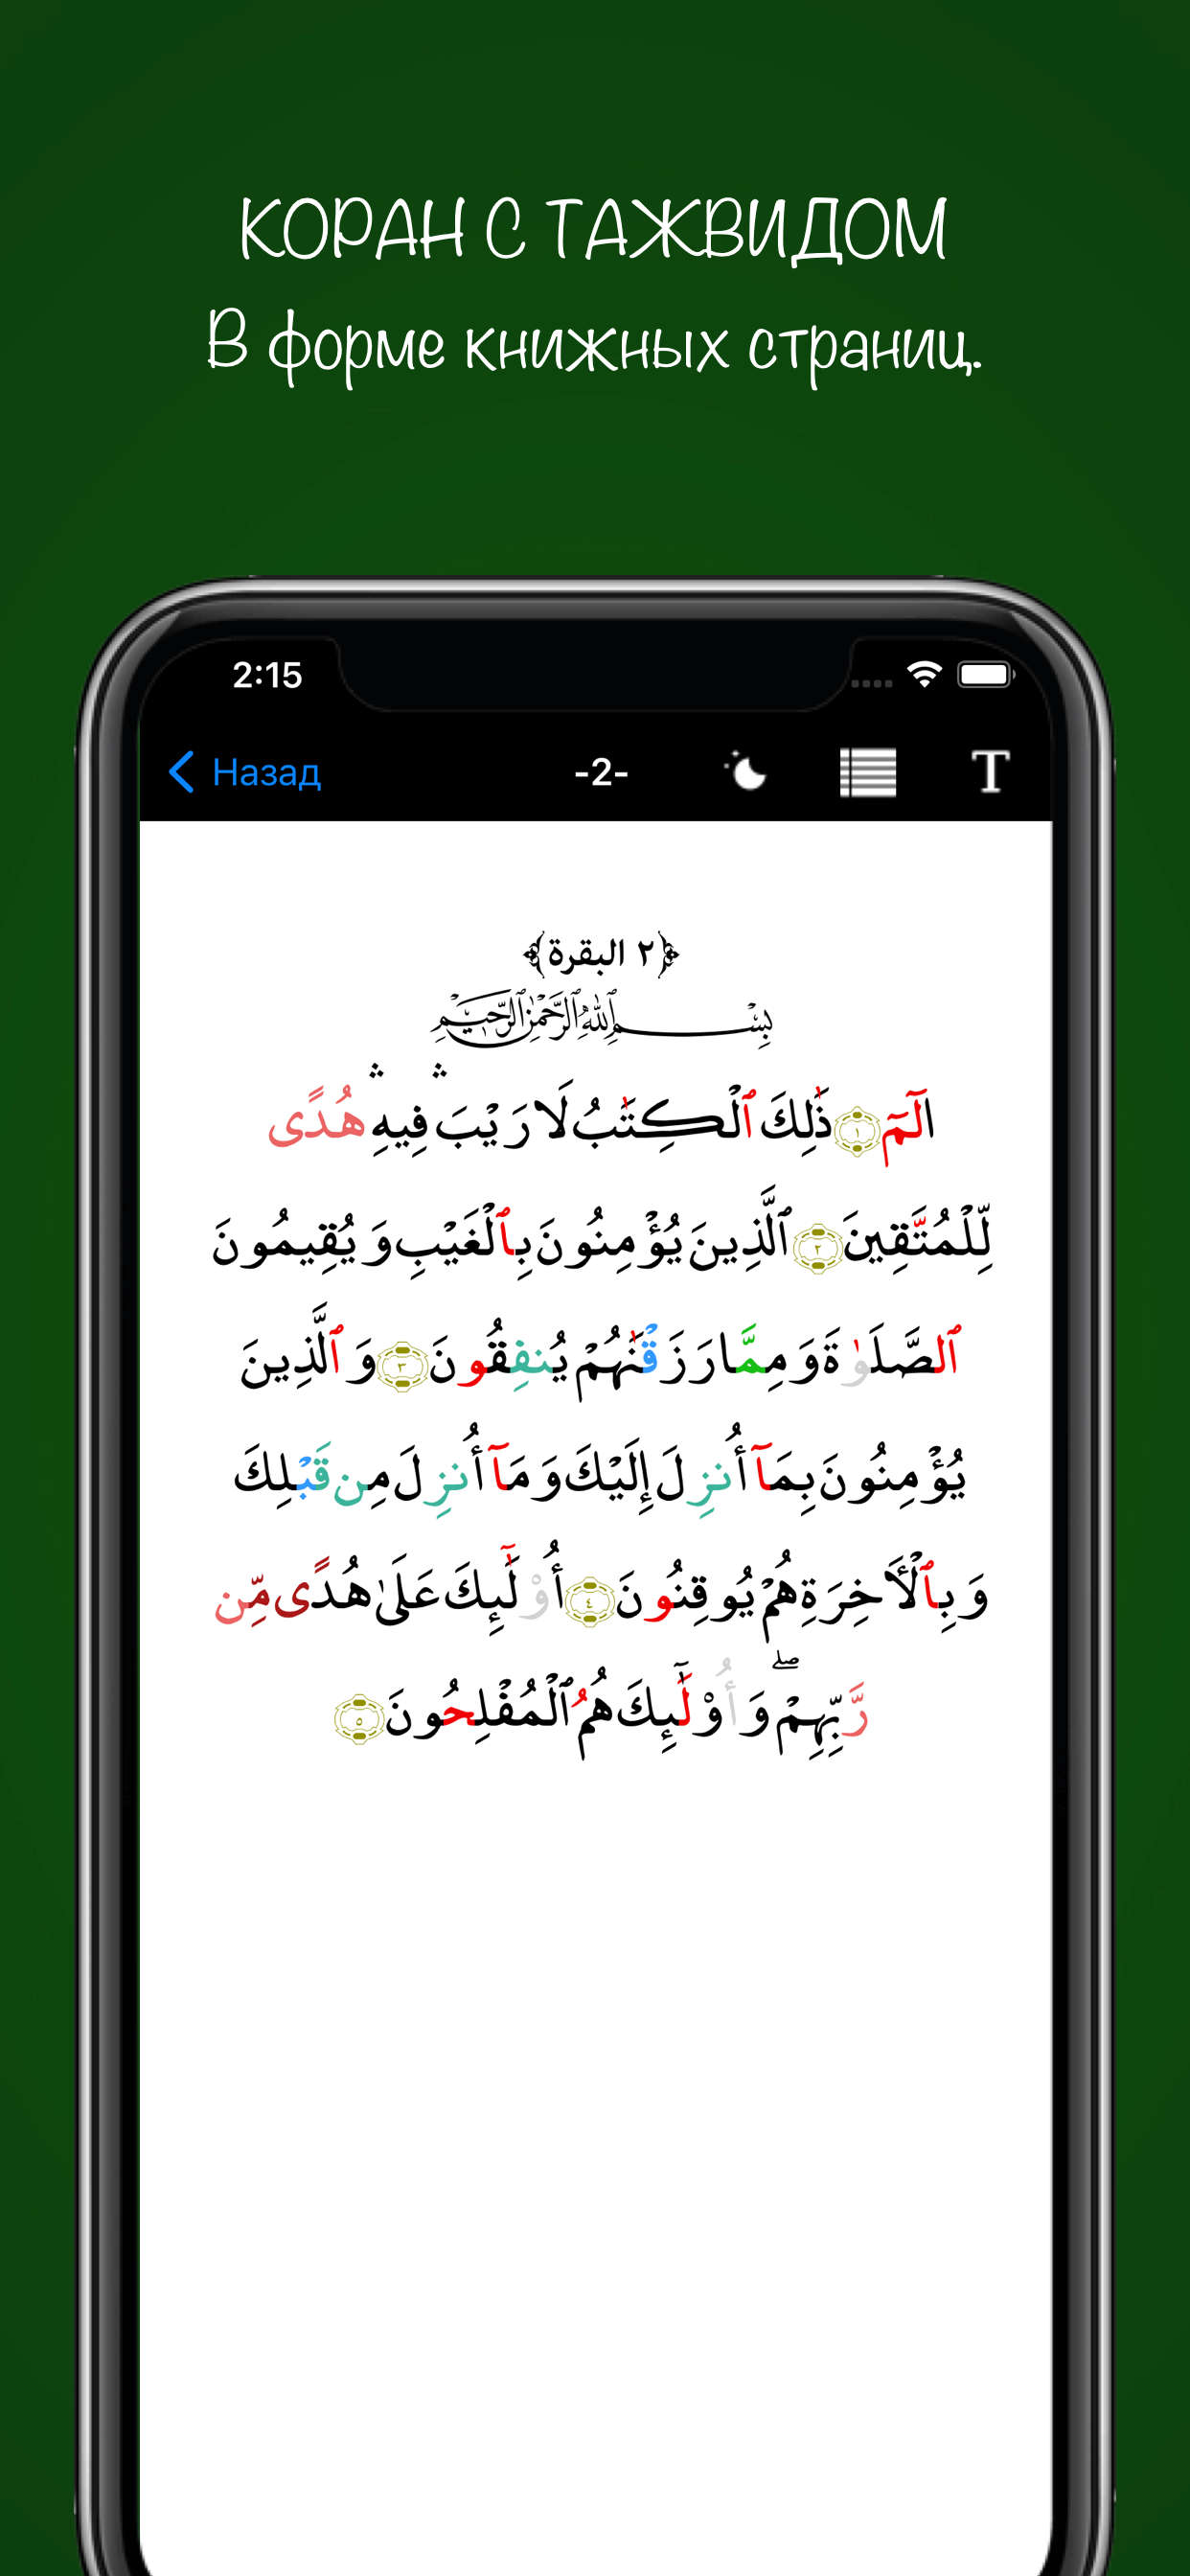 КОРАН С ТАЖВИДОМ
В форме книжных страниц.
2:15
Назад -2- T
﴿٢ البقرة﴾
بِسْمِ ٱللَّهِ ٱلرَّحْمَٰنِ ٱلرَّحِيمِ
الٓمٓ ١ ذَٰلِكَ ٱلْكِتَٰبُ لَا رَيْبَ ۛ فِيهِ ۛ هُدًى
لِّلْمُتَّقِينَ ٢ ٱلَّذِينَ يُؤْمِنُونَ بِٱلْغَيْبِ وَيُقِيمُونَ
ٱلصَّلَوٰةَ وَمِمَّا رَزَقْنَٰهُمْ يُنفِقُونَ ٣ وَٱلَّذِينَ
يُؤْمِنُونَ بِمَآ أُنزِلَ إِلَيْكَ وَمَآ أُنزِلَ مِن قَبْلِكَ
وَبِٱلْـَٔاخِرَةِ هُمْ يُوقِنُونَ ٤ أُو۟لَٰٓئِكَ عَلَىٰ هُدًى مِّن
رَّبِّهِمْ ۖ وَأُو۟لَٰٓئِكَ هُمُ ٱلْمُفْلِحُونَ ٥